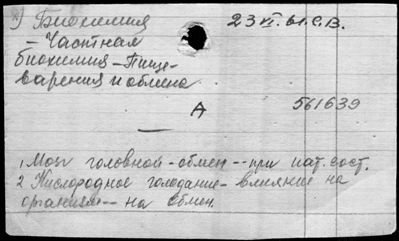 3) Биохимия 23 VI. 61. С.В.
- Частная
биохимия - Пище-
варения и обмена
А 561639
1 Мозг головной - обмен -- при пат. сост.
2 Кислородное голодание - влияние на
организм -- на обмен.